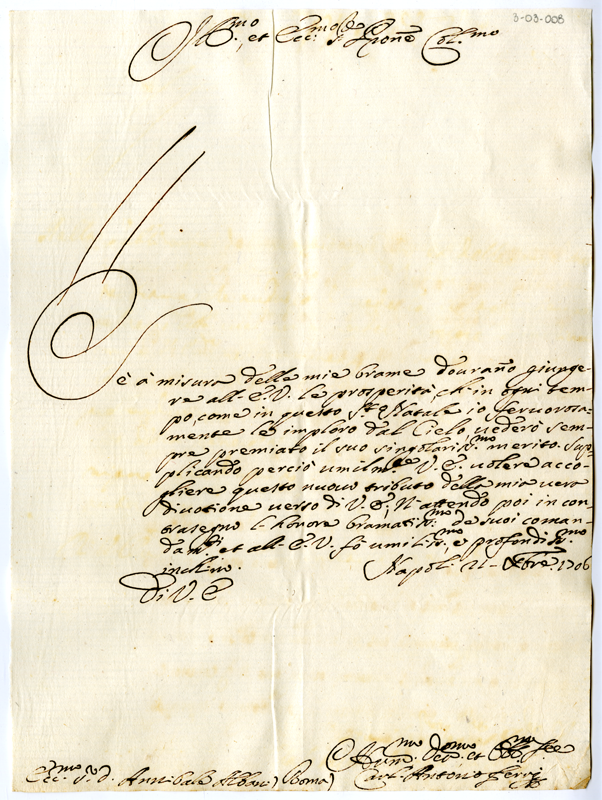 3-03-008
Ill.mo, et Ecc.mo S.r S.r P̃rone Col.mo
Se à misura delle mie brame dourano giunge-
re all'E.V. le prosperità, ch'in ogni tem-
po, come in questo S.to Natale io feruorosa-
mente le imploro dal Cielo uederò sem-
pre premiato il suo singolariss.mo merito. Sup-
plicando perciò umilm.te V.E. uolere acco-
gliere questo nuouo tributo della mia uera
diuotione uerso di V.E., N'attendo poi in con-
trasegno l'honore bramatiss.mo de suoi coman-
dam.ti, et all'E.V. fò umiliss.mo, e profondiss.mo
inchino.
Napoli 21 Xbre. 1706
Di V.E
Hum.mo Deu.mo et Obb.mo
Ecc.mo S.r D. Annibale Albani (Roma)
Antonio